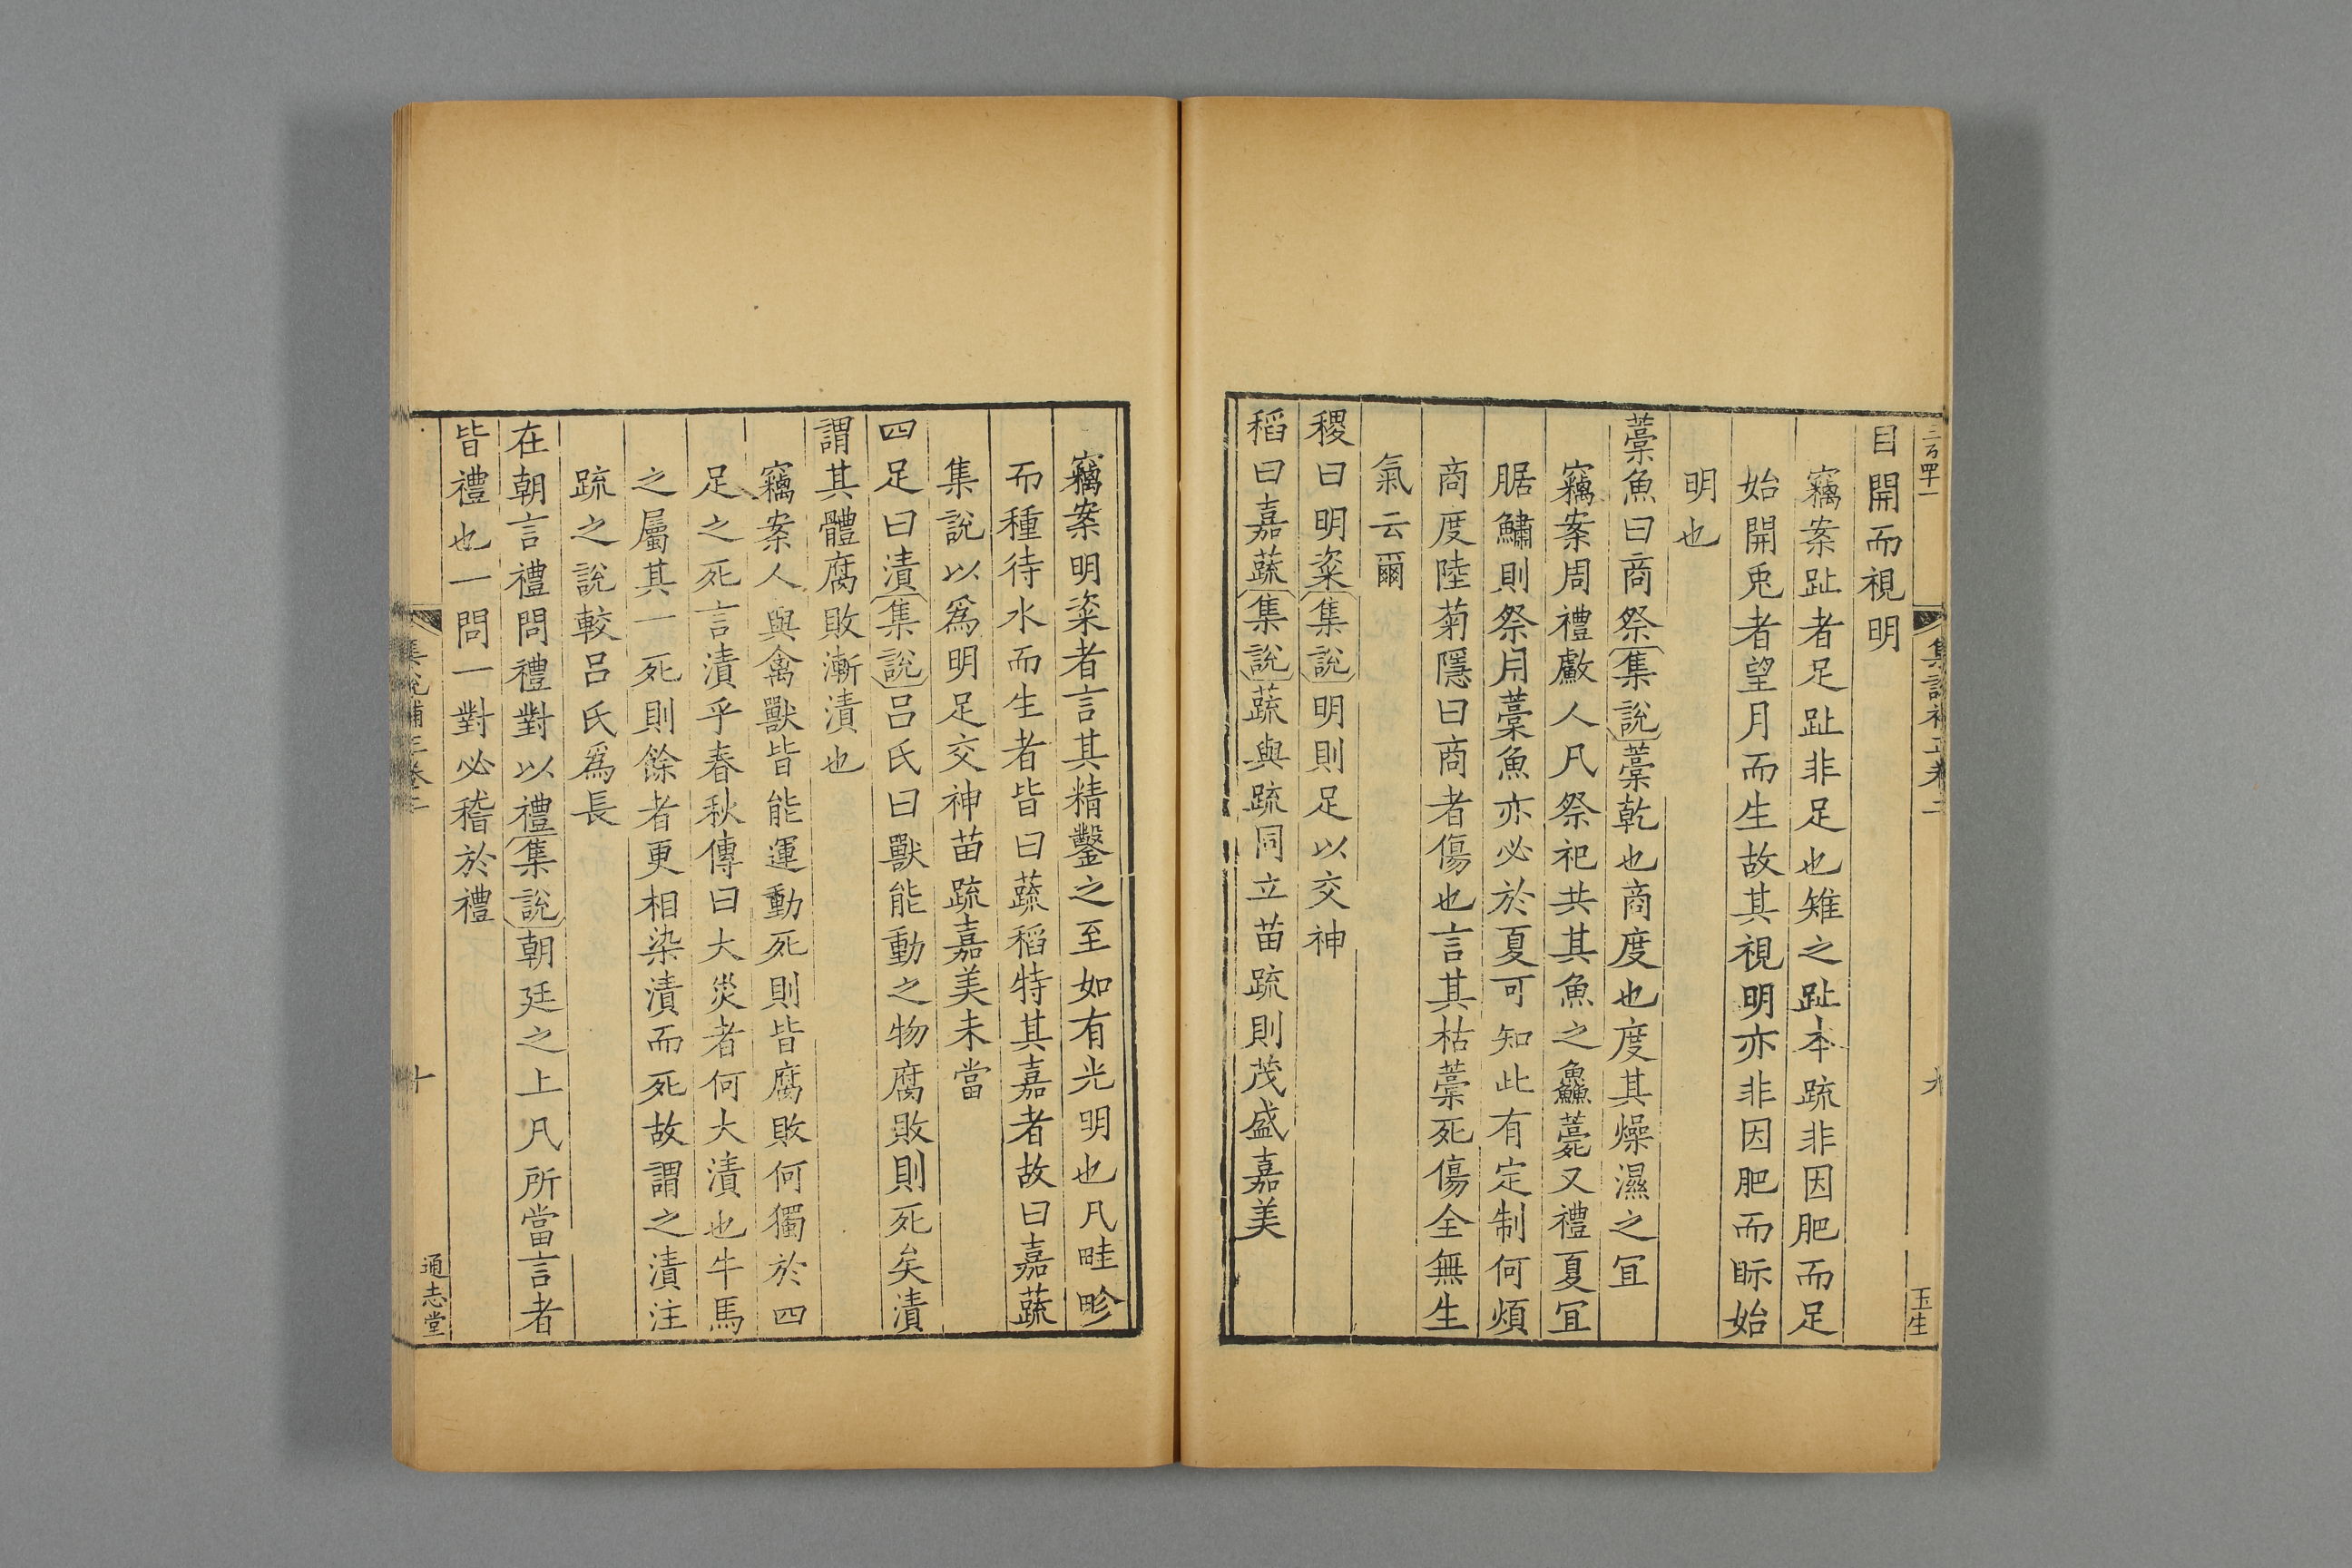 集說補正卷二
九
玉生
目開而視明
竊案趾者足趾非足也雉之趾本疏非因肥而足
始開兎者望月而生故其視明亦非因肥而眎始
明也
藁魚曰商祭集說藁乾也商度也度其燥濕之冝
竊案周禮䱷人凡祭祀共其魚之鱻薧又禮夏冝
腒鱐則祭用藁魚亦必於夏可知此有定制何煩
商度陸菊隱曰商者傷也言其枯藁死傷全無生
氣云爾
稷曰明粢集說明則足以交神
稻曰嘉蔬集說蔬與疏同立苗疏則茂盛嘉美
竊案明粢者言其精鑿之至如有光明也凡畦畛
而種待水而生者皆曰蔬稻特其嘉者故曰嘉蔬
集說以爲明足交神苗疏嘉美未當
四足曰漬集說呂氏曰獸能動之物腐敗則死矣漬
謂其體腐敗漸漬也
竊案人與禽獸皆能運動死則皆腐敗何獨於四
足之死言漬乎春秋傳曰大災者何大漬也牛馬
之屬其一死則餘者更相染漬而死故謂之漬注
疏之說較呂氏爲長
在朝言禮問禮對以禮集說朝廷之上凡所當言者
皆禮也一問一對必稽於禮
集說補正卷二
十
通志堂